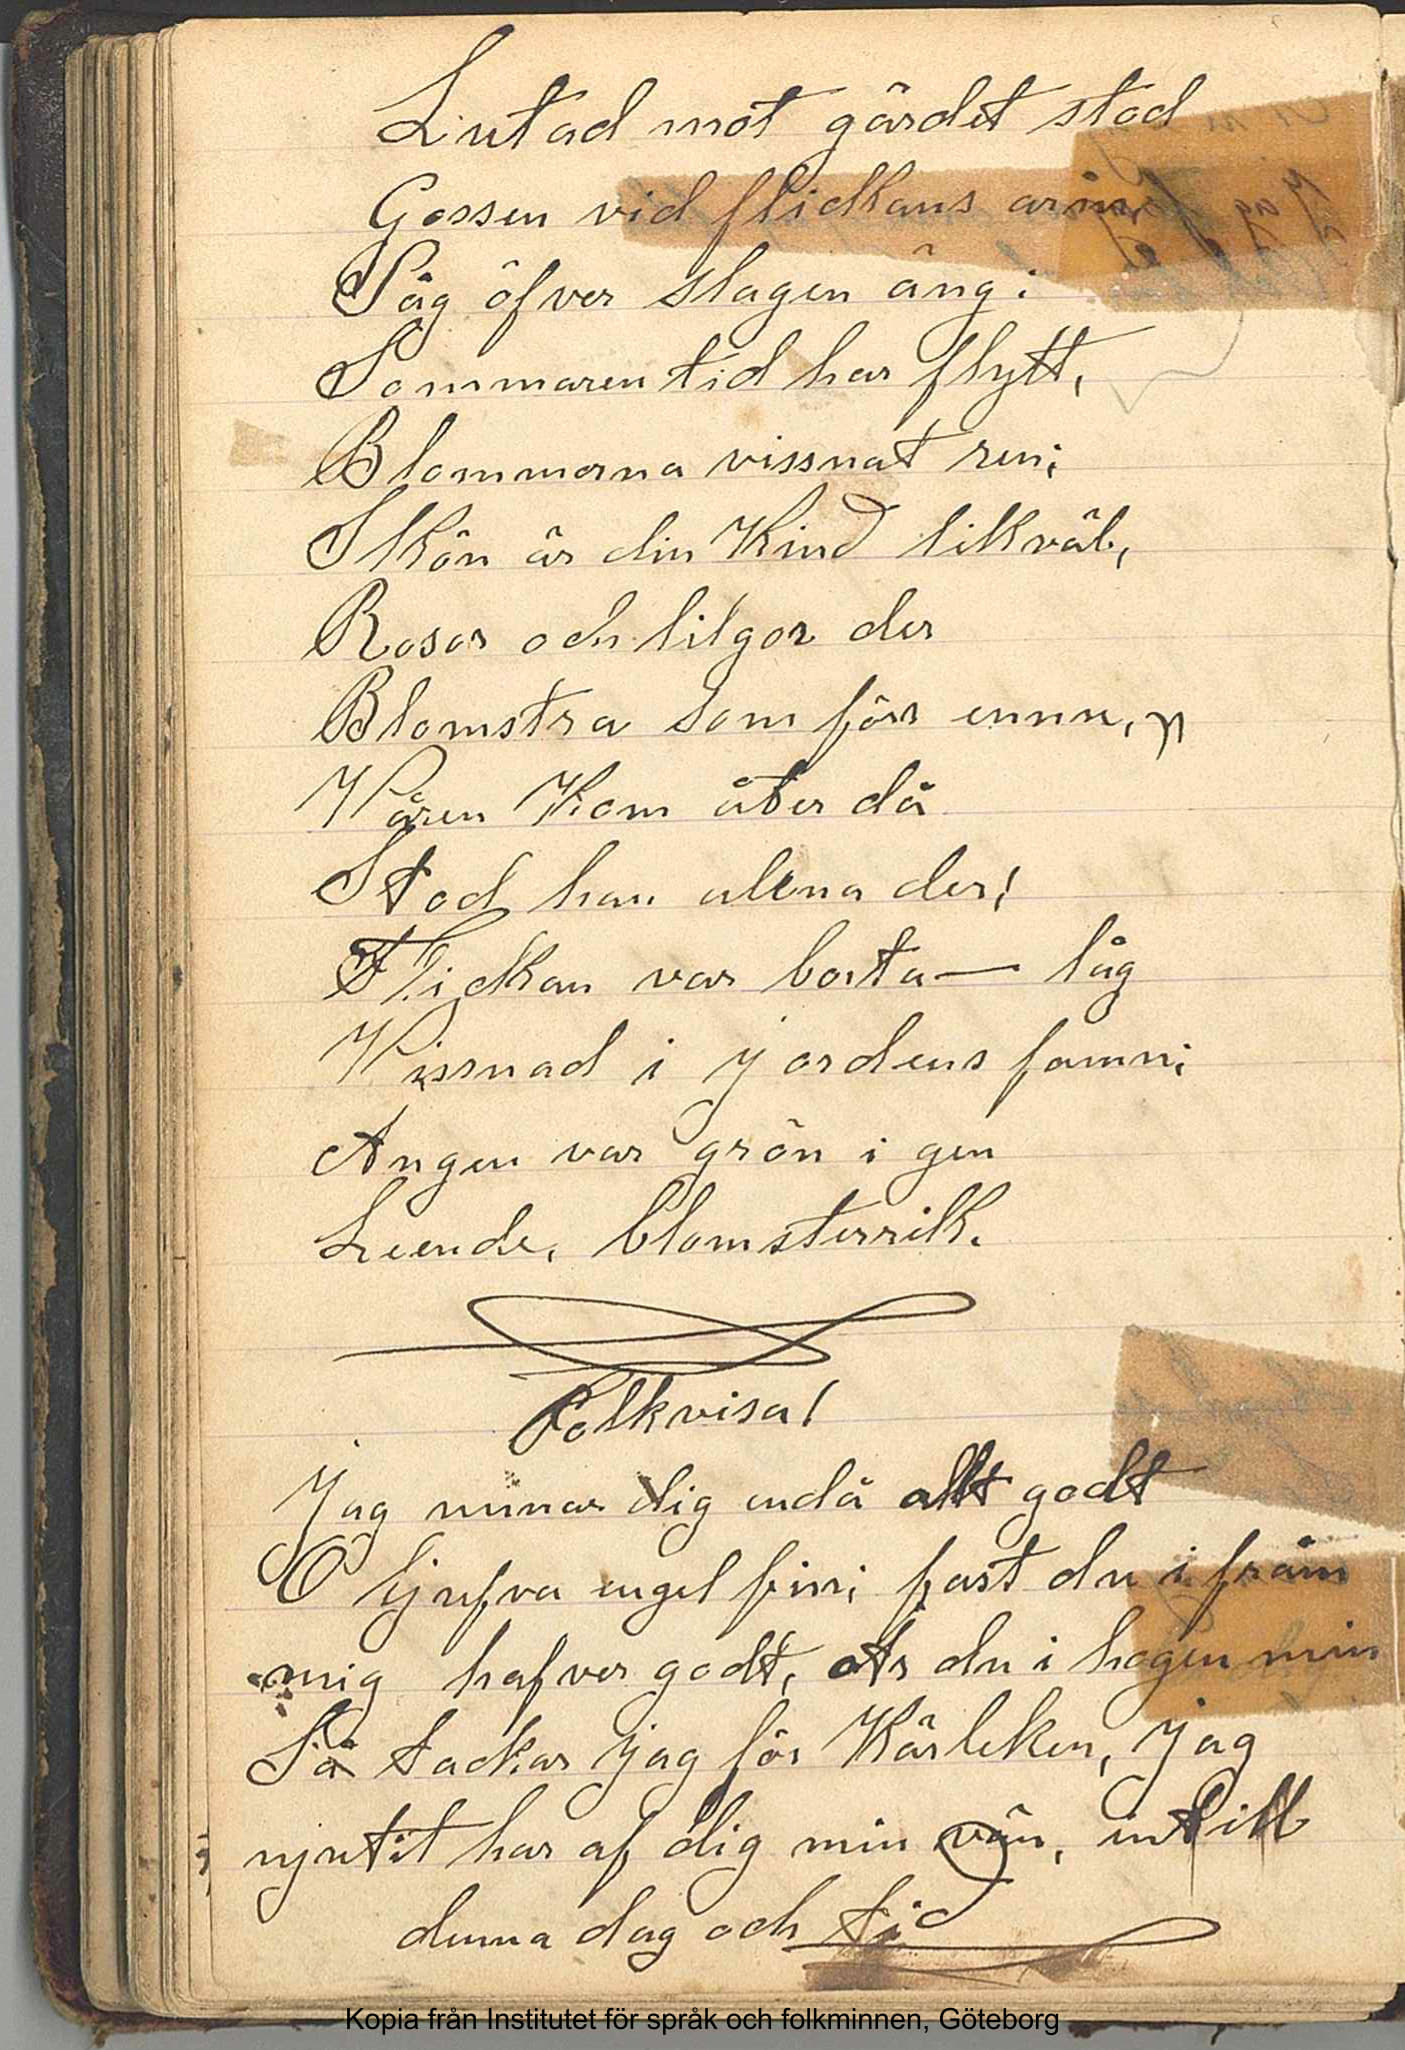 Lutad mot gärdet stod
Gossen vid flickans arm
Såg öfver slagen äng;
Sommaren tid har flytt,
Blommorna vissnat ren;
Skön är din Kind likväl,
Rosor och liljor der
Blomstra som förr ennu,
Våren Kom åter då
Stod han allena der!
Flickan var borta — låg
Vissnad i jordens famn;
Ängen var grön i gen
Leende, blomsterrik.
Folkvisa!
Jag unnar dig endå allt godt
O ljufva engel fin; fast du i från
mig hafver godt, äs du i hogen min
Så tackar jag för Kärleken, jag
njutit har af dig min vän, intill
denna dag och tid
Kopia från Institutet för språk och folkminnen, Göteborg